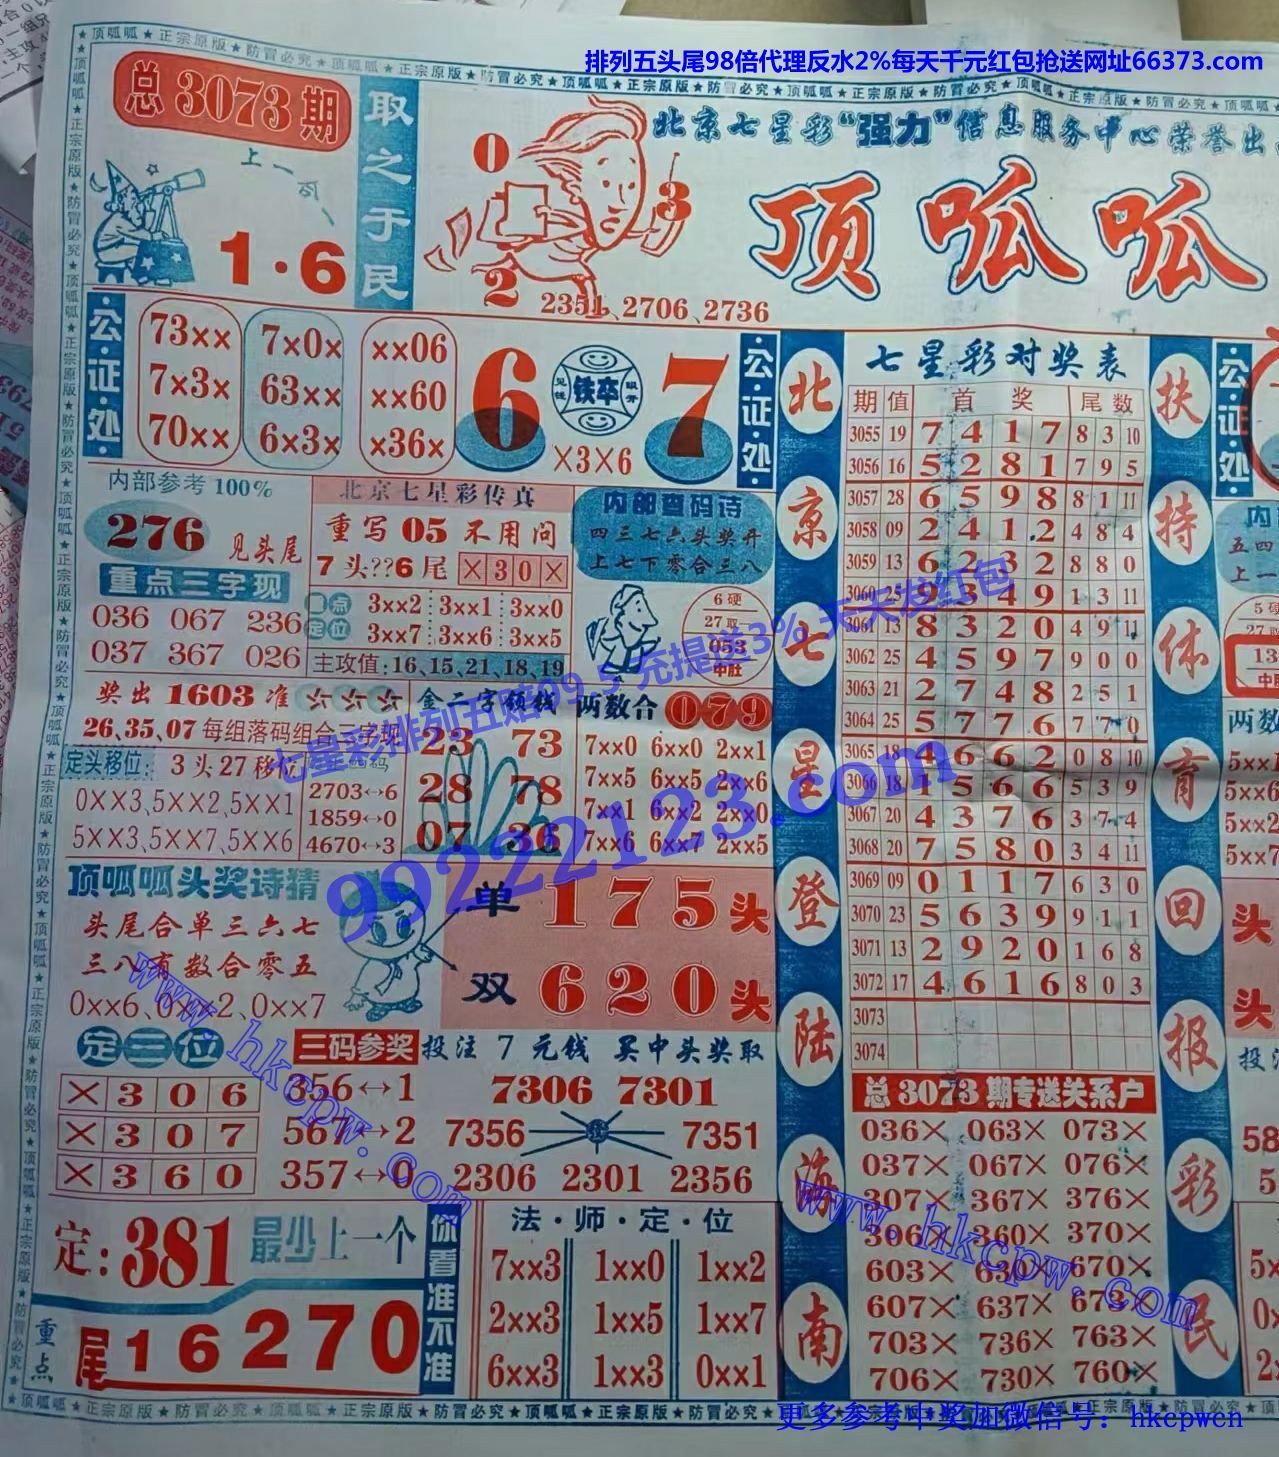 排列五头尾98倍代理反水2%每天千元红包抢送网址66373.com
★顶呱呱★正宗原版★防冒必究★顶呱呱★正宗原版★防冒必究★顶呱呱★正宗原版★防冒必究★顶呱呱★正宗原版★防冒必究★
总3073期
上一倍
1·6
取之于民
0
3
2
2351、2706、2736
北京七星彩“强力”信息服务中心荣誉出
顶呱呱
公·证·处
73×× 7×0× ××06
7×3× 63×× ××60
70×× 6×3× ×36×
6 铁卒 7
×3×6
公·证·处
内部参考100%
276 见头尾
重点三字现
036 067 236
037 367 026
北京七星彩传真
重写05不用问
7头??6尾 ×30×
重点定位
3××2 3××1 3××0
3××7 3××6 3××5
主攻值:16、15、21、18、19
内部查码诗
四三七六头奖开
上七下零合三八
6硬
27取
053
中肚
奖出1603准
26、35、07每组落码组合三字现
定头移位: 3头27移位
0××3、5××2、5××1
5××3、5××7、5××6
2703↔6
1859↔0
4670↔3
金二字领钱
23 73
28 78
07 36
两数合 079
7××0 6××0 2××1
7××5 6××5 2××6
7××1 6××2 2××0
7××6 6××7 2××5
顶呱呱头奖诗猜
头尾合单三六七
三八有数合零五
0××6、0××2、0××7
单 175头
双 620头
定三位
×306
×307
×360
三码参奖
356↔1
567↔2
357↔0
投注7元钱 买中头奖取
7306 7301
7356 7351
2306 2301 2356
定:381最少上一个
重点 尾16270
你看准不准
法·师·定·位
7××3 1××0 1××2
2××3 1××5 1××7
6××3 1××3 0××1
北京七星登陆海南
七星彩对奖表
期 值 首奖 尾数
3055 19 7 4 1 7 8 3 10
3056 16 5 2 8 1 7 9 5
3057 28 6 5 9 8 8 1 11
3058 09 2 4 1 2 4 8 4
3059 13 6 2 3 2 8 8 0
3060 25 9 3 4 9 1 3 11
3061 13 8 3 2 0 4 9 11
3062 25 4 5 9 7 9 0 0
3063 21 2 7 4 8 2 5 1
3064 25 5 7 7 6 7 7 0
3065 18 4 6 6 2 0 8 10
3066 18 1 5 6 6 5 3 9
3067 20 4 3 7 6 3 7 4
3068 20 7 5 8 0 3 4 11
3069 09 0 1 1 7 6 3 0
3070 23 5 6 3 9 9 1 1
3071 13 2 9 2 0 1 6 8
3072 17 4 6 1 6 8 0 3
3073
3074
总3073期专送关系户
036× 063× 073×
037× 067× 076×
307× 367× 376×
306× 360× 370×
603× 630× 670×
607× 637× 673×
703× 736× 763×
706× 730× 760×
扶持体育回报彩民
公·证·处
内
五四
上一
5硬
27取
13
中肚
两数
5××1
5××6
5××2
5××7
头
头
投注
七星彩排列五赔99.5 充提送3% 天天发红包
99222123.com
www.hkcpw.com
www.hkcpw.com
★顶呱呱★正宗原版★防冒必究★顶呱呱★正宗原版★防冒必究★顶呱呱★正宗原版★防冒必究★顶呱呱★正宗原版★防冒必究★
更多参考中奖加微信号：hkcpwcn